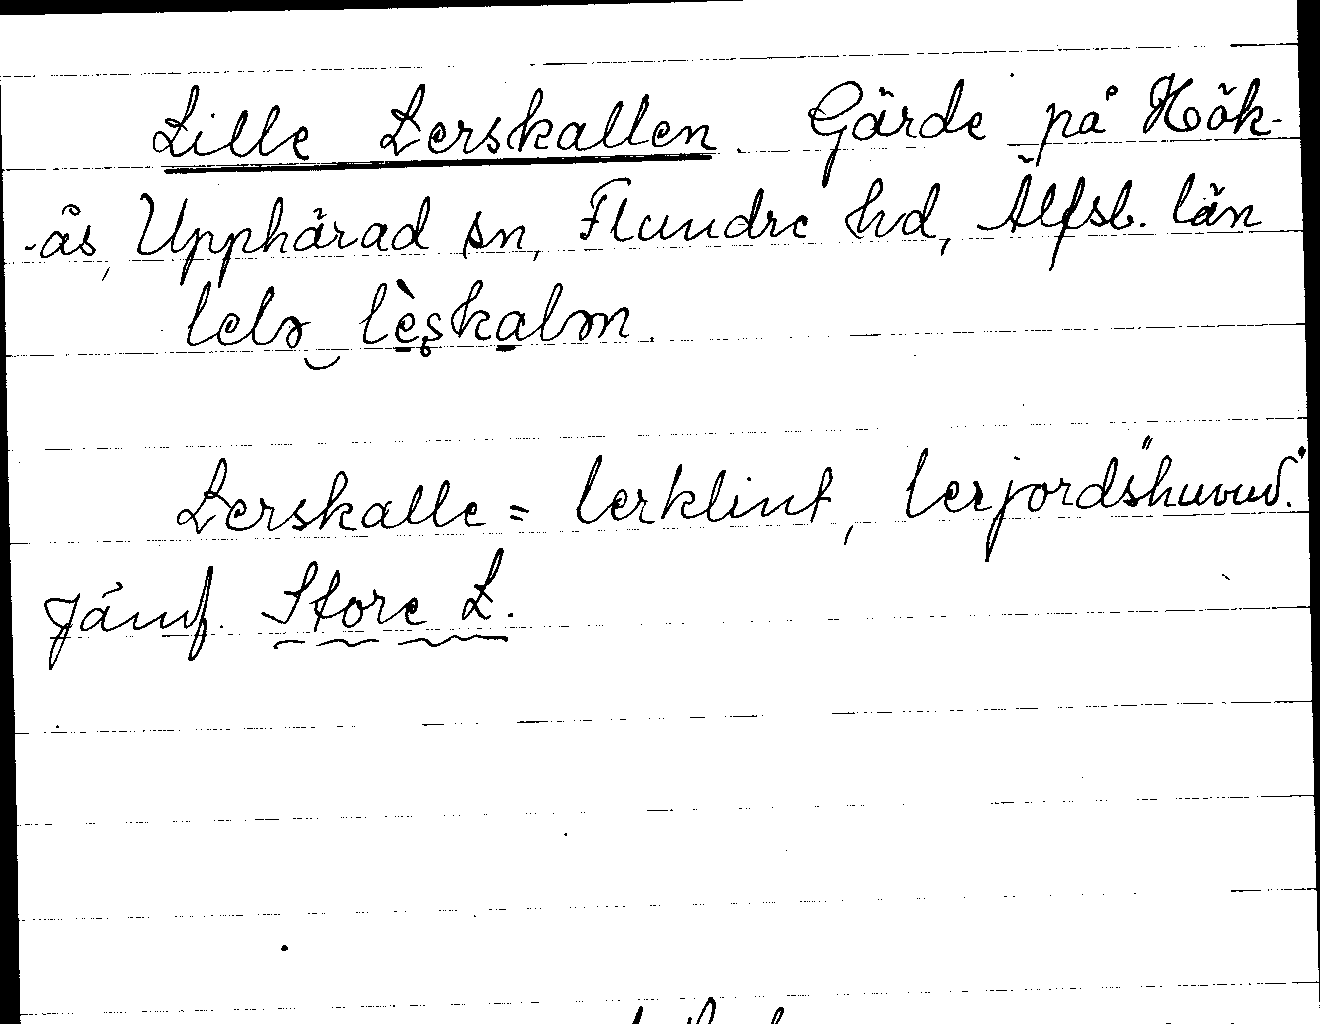 Lille Lerskallen. Gärde på Hök-
-ås, Upphärad sn, Flundre hd, Älfsb. län
lelɘ lèşkalɘn.
Lerskalle = lerklint, lerjords"huvud".
Jämf. Store L.